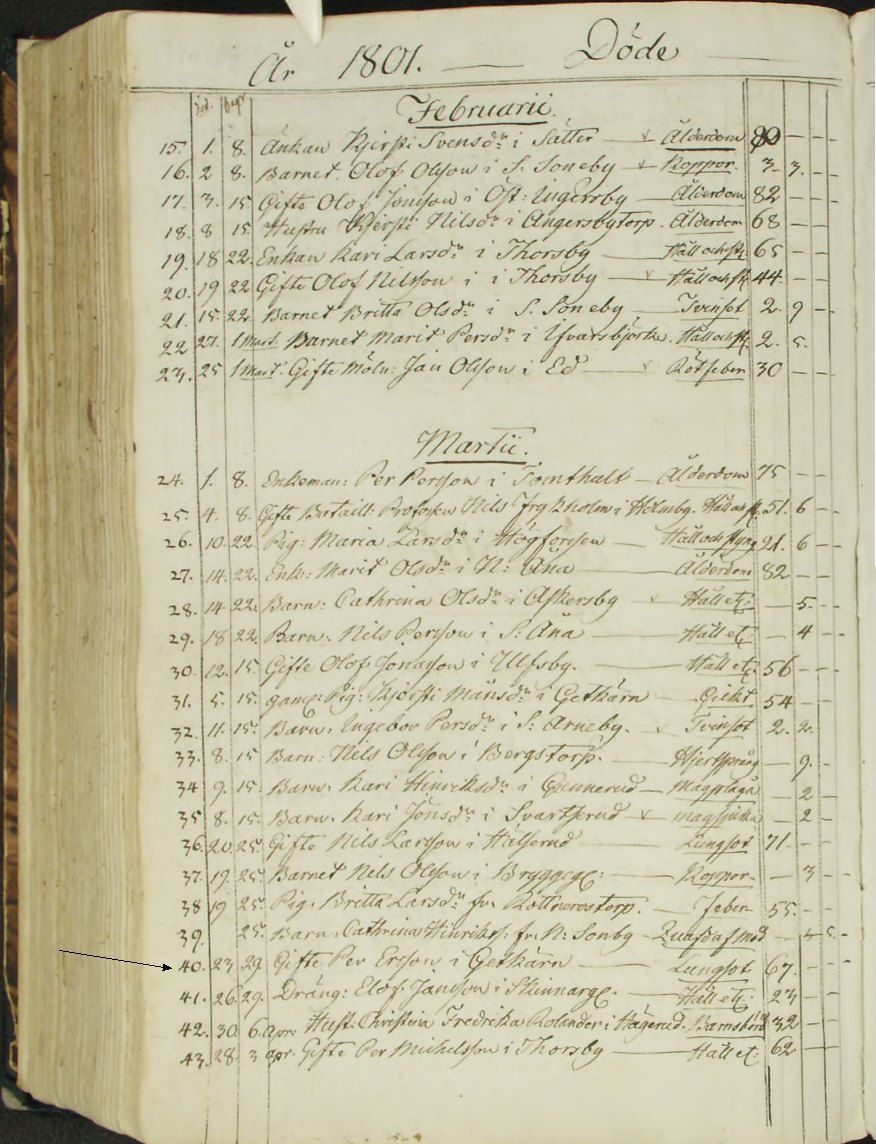 År 1801. — Döde
död. begr.
Februarii.
15. 1. 8. Änkan Kjersti Svensdr. i Sätter — Ålderdom 80 — — —
16. 2 8. Barnet Olof Olsson i S: Soneby — Koppor. 3 - 3. — —
17. 3. 15. Gifte Olof Jönsson i Öst: Ingersby — Ålderdom 82 — — —
18. 8 15. Hustru Kjersti Nilsdr. i Ångersbytorp. Ålderdom 68 — —
19. 18 22. Enkan Kari Larsdr. i Thorsby — Håll och St: 65 — —
20. 19 22 Gifte Olof Nilsson i i Thorsby — Håll och St 44. — —
21. 15. 22. Barnet Britta Olsdr. i S. Soneby, Tvinsot 2. 9 —
22 27. 1 Mart. Barnet Marit Persdr. i Ifvarsbjörke. Håll och St. 2. 5.
23. 25 1 Mart. Gifte Möln: Jan Olsson i Ed — Rötfeber 30 — —
Martii.
24. 1. 8. Enkeman: Per Persson i Tomthalt — Ålderdom 75 — —
25. 4. 8. Gifte Bataill: Profossen Nils Frykholm i Holmby. Håll och St. 51. 6 —
26. 10. 22. Pig: Maria Larsdr. i Högforssen — Håll och Styng 21. 6 —
27. 14. 22. Enk: Marit Olsdr. i N: Åna — Ålderdom 82 — —
28. 14 22. Barn: Cathrina Olsdr. i Askersby — Håll etc: — 5. — -
29. 18 22. Barn: Nils Persson i S: Åna — Håll etc: — 4 — -
30. 12. 15. Gifte Olof Jonasson i Ulfsby. — Håll etc. 56 — — -
31. 5. 15. gamp: Pig: Kjersti Månsdr. i Getkärn — Gickt. 54 — —
32. 11. 15. Barn: Ingebor Persdr. i S: Arneby. Tvinsot 2. 2. —
33. 8. 15 Barn: Nils Olsson i Bergstorp. Hjertsprång — 9. —
34 9. 15. Barn: Kari Hinricksdr. i Gunnerud — Magplåga — 2 —
35 8. 15. Barn. Kari Jönsdr. i Svartserud — magsjuka — 2 —
36. 20 25. Gifte Nils Larsson i Hälserud — Lungsot 71. — —
37. 19. 25 Barnet Nils Olsson i Bryggeg: — Koppor. — 3 — —
38 19 25. Pig. Britta Larsdr. fr. Rottnerostorp. — Feber 55. — —
39. 25. Barn: Cathrina Hinriksd. fr. N: Sonby
40. 23 29. Gifte Per Ersson i Getkärn — Lungsot 67. — —
41. 26. 29. Dräng: Elof Jansson i Skinnarg. — Håll etc: 23 — —
42. 30. 6. Apr. Hust: Christina Fredrika Rolander i Hagerud. Barnsbörd 32 — —
43. 28. 3 apr. Gifte Per Michelsson i Thorsby — Håll etc: 62 — —